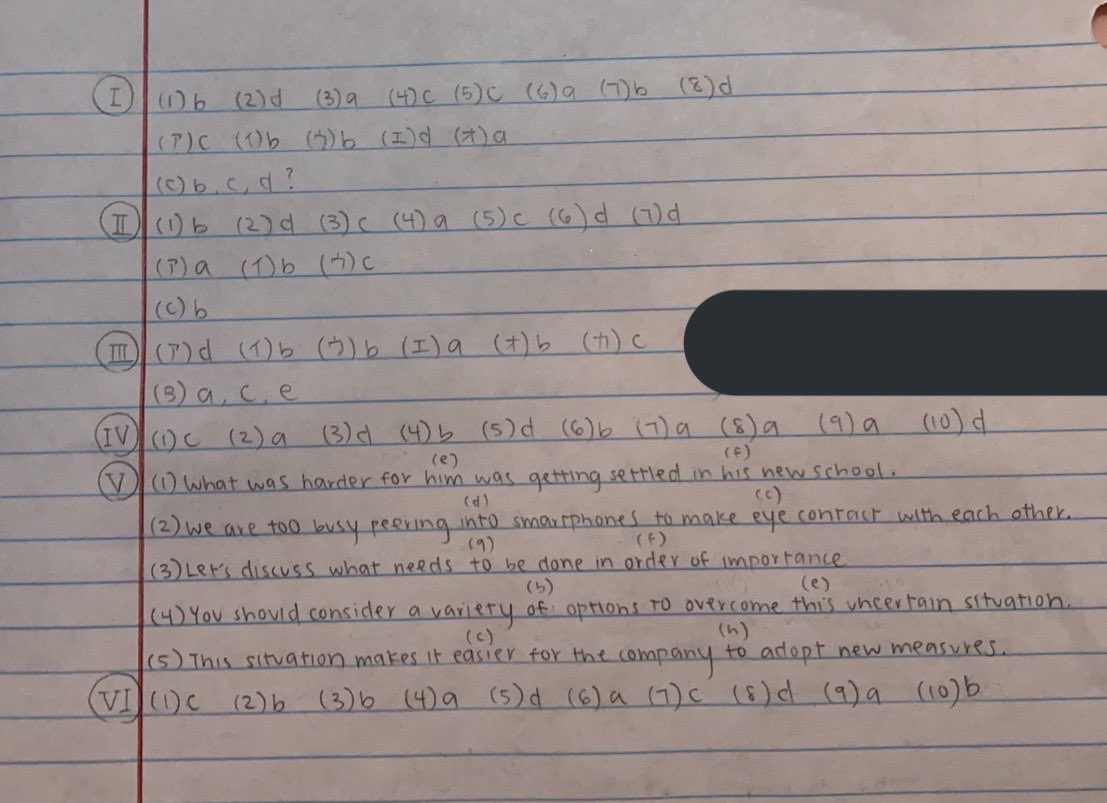 I (1)b (2)d (3)a (4)c (5)c (6)a (7)b (8)d
(ア)c (イ)b (ウ)b (エ)d (オ)a
(C) b, c, d?
II (1)b (2)d (3)c (4)a (5)c (6)d (7)d
(ア)a (イ)b (ウ)c
(C) b
III (ア)d (イ)b (ウ)b (エ)a (オ)b (カ)c
(B) a, c, e
IV (1)c (2)a (3)d (4)b (5)d (6)b (7)a (8)a (9)a (10)d
(e) (f)
V (1) What was harder for him was getting settled in his new school.
(d) (c)
(2) We are too busy peering into smartphones to make eye contact with each other.
(g) (f)
(3) Let's discuss what needs to be done in order of importance
(b) (e)
(4) You should consider a variety of options to overcome this uncertain situation.
(c) (h)
(5) This situation makes it easier for the company to adopt new measures.
VI (1)c (2)b (3)b (4)a (5)d (6)a (7)c (8)d (9)a (10)b